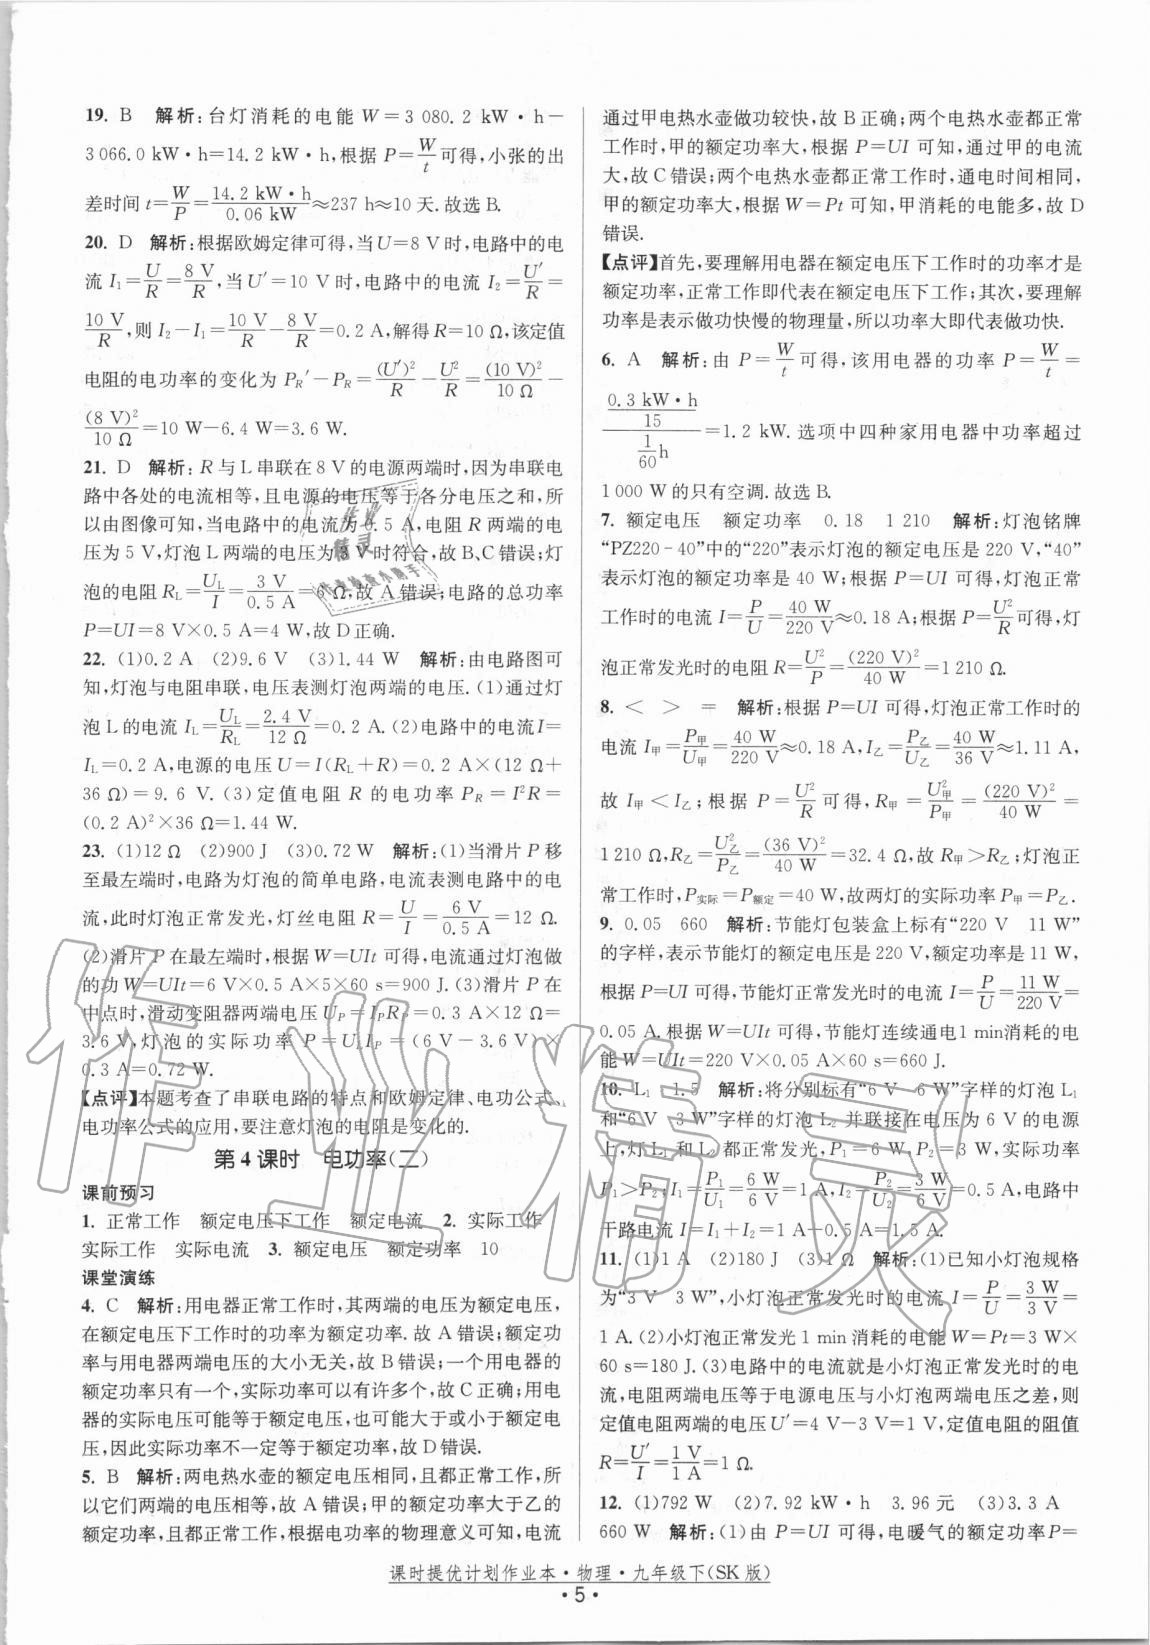 19. B 解析:台灯消耗的电能 W=3 080.2 kW·h-
3 066.0 kW·h=14.2 kW·h,根据 P=W/t可得,小张的出
差时间 t=W/P=14.2 kW·h/0.06 kW≈237 h≈10 天.故选 B.
20. D 解析:根据欧姆定律可得,当 U=8 V 时,电路中的电
流 I₁=U/R=8 V/R,当 U′=10 V 时,电路中的电流 I₂=U′/R=
10 V/R,则 I₂-I₁=10 V/R-8 V/R=0.2 A,解得 R=10 Ω,该定值
电阻的电功率的变化为 P_R′-P_R=(U′)²/R-U²/R=(10 V)²/10 Ω-
(8 V)²/10 Ω=10 W-6.4 W=3.6 W.
21. D 解析:R 与 L 串联在 8 V 的电源两端时,因为串联电
路中各处的电流相等,且电源的电压等于各分电压之和,所
以由图像可知,当电路中的电流为 0.5 A,电阻 R 两端的电
压为 5 V,灯泡 L 两端的电压为 3 V 时符合,故 B、C 错误;灯
泡的电阻 R_L=U_L/I=3 V/0.5 A=6 Ω,故 A 错误;电路的总功率
P=UI=8 V×0.5 A=4 W,故 D 正确.
22. (1)0.2 A (2)9.6 V (3)1.44 W 解析:由电路图可
知,灯泡与电阻串联,电压表测灯泡两端的电压.(1)通过灯
泡 L 的电流 I_L=U_L/R_L=2.4 V/12 Ω=0.2 A.(2)电路中的电流 I=
I_L=0.2 A,电源的电压 U=I(R_L+R)=0.2 A×(12 Ω+
36 Ω)=9.6 V.(3)定值电阻 R 的电功率 P_R=I²R=
(0.2 A)²×36 Ω=1.44 W.
23. (1)12 Ω (2)900 J (3)0.72 W 解析:(1)当滑片 P 移
至最左端时,电路为灯泡的简单电路,电流表测电路中的电
流,此时灯泡正常发光,灯丝电阻 R=U/I=6 V/0.5 A=12 Ω.
(2)滑片 P 在最左端时,根据 W=UIt 可得,电流通过灯泡做
的功 W=UIt=6 V×0.5 A×5×60 s=900 J.(3)滑片 P 在
中点时,滑动变阻器两端电压 U_P=I_PR_P=0.3 A×12 Ω=
3.6 V,灯泡的实际功率 P=U_LI_P=(6 V-3.6 V)×
0.3 A=0.72 W.
【点评】本题考查了串联电路的特点和欧姆定律、电功公式、
电功率公式的应用,要注意灯泡的电阻是变化的.
第 4 课时 电功率(二)
课前预习
1. 正常工作 额定电压下工作 额定电流 2. 实际工作
实际工作 实际电流 3. 额定电压 额定功率 10
课堂演练
4. C 解析:用电器正常工作时,其两端的电压为额定电压,
在额定电压下工作时的功率为额定功率.故 A 错误;额定功
率与用电器两端电压的大小无关,故 B 错误;一个用电器的
额定功率只有一个,实际功率可以有许多个,故 C 正确;用电
器的实际电压可能等于额定电压,也可能大于或小于额定电
压,因此实际功率不一定等于额定功率,故 D 错误.
5. B 解析:两电热水壶的额定电压相同,且都正常工作,所
以它们两端的电压相等,故 A 错误;甲的额定功率大于乙的
额定功率,且都正常工作,根据电功率的物理意义可知,电流
通过甲电热水壶做功较快,故 B 正确;两个电热水壶都正常
工作时,甲的额定功率大,根据 P=UI 可知,通过甲的电流
大,故 C 错误;两个电热水壶都正常工作时,通电时间相同,
甲的额定功率大,根据 W=Pt 可知,甲消耗的电能多,故 D
错误.
【点评】首先,要理解用电器在额定电压下工作时的功率才是
额定功率,正常工作即代表在额定电压下工作;其次,要理解
功率是表示做功快慢的物理量,所以功率大即代表做功快.
6. A 解析:由 P=W/t可得,该用电器的功率 P=W/t=
(0.3 kW·h/15)/(1/60 h)=1.2 kW.选项中四种家用电器中功率超过
1 000 W 的只有空调.故选 B.
7. 额定电压 额定功率 0.18 1 210 解析:灯泡铭牌
“PZ220-40”中的“220”表示灯泡的额定电压是 220 V,“40”
表示灯泡的额定功率是 40 W;根据 P=UI 可得,灯泡正常
工作时的电流 I=P/U=40 W/220 V≈0.18 A;根据 P=U²/R可得,灯
泡正常发光时的电阻 R=U²/P=(220 V)²/40 W=1 210 Ω.
8. < > = 解析:根据 P=UI 可得,灯泡正常工作时的
电流 I甲=P甲/U甲=40 W/220 V≈0.18 A,I乙=P乙/U乙=40 W/36 V≈1.11 A,
故 I甲<I乙;根据 P=U²/R可得,R甲=U甲²/P甲=(220 V)²/40 W=
1 210 Ω,R乙=U乙²/P乙=(36 V)²/40 W=32.4 Ω,故 R甲>R乙;灯泡正
常工作时,P实际=P额定=40 W,故两灯的实际功率 P甲=P乙.
9. 0.05 660 解析:节能灯包装盒上标有“220 V 11 W”
的字样,表示节能灯的额定电压是 220 V,额定功率是 11 W,
根据 P=UI 可得,节能灯正常发光时的电流 I=P/U=11 W/220 V=
0.05 A.根据 W=UIt 可得,节能灯连续通电1 min消耗的电
能 W=UIt=220 V×0.05 A×60 s=660 J.
10. L₁ 1.5 解析:将分别标有“6 V 6 W”字样的灯泡 L₁
和“6 V 3 W”字样的灯泡 L₂ 并联接在电压为 6 V 的电源
上,灯 L₁ 和 L₂ 都正常发光,P₁=6 W,P₂=3 W,实际功率
P₁>P₂;I₁=P₁/U₁=6 W/6 V=1 A,I₂=P₂/U₂=3 W/6 V=0.5 A,电路中
干路电流 I=I₁+I₂=1 A+0.5 A=1.5 A.
11. (1)1 A (2)180 J (3)1 Ω 解析:(1)已知小灯泡规格
为“3 V 3 W”,小灯泡正常发光时的电流 I=P/U=3 W/3 V=
1 A.(2)小灯泡正常发光 1 min 消耗的电能 W=Pt=3 W×
60 s=180 J.(3)电路中的电流就是小灯泡正常发光时的电
流,电阻两端电压等于电源电压与小灯泡两端电压之差,则
定值电阻两端的电压 U′=4 V-3 V=1 V,定值电阻的阻值
R=U′/I=1 V/1 A=1 Ω.
12. (1)792 W (2)7.92 kW·h 3.96 元 (3)3.3 A
660 W 解析:(1)由 P=UI 可得,电暖气的额定功率P=
课时提优计划作业本·物理·九年级下(SK 版)
·5·
作业精灵
作业
精灵